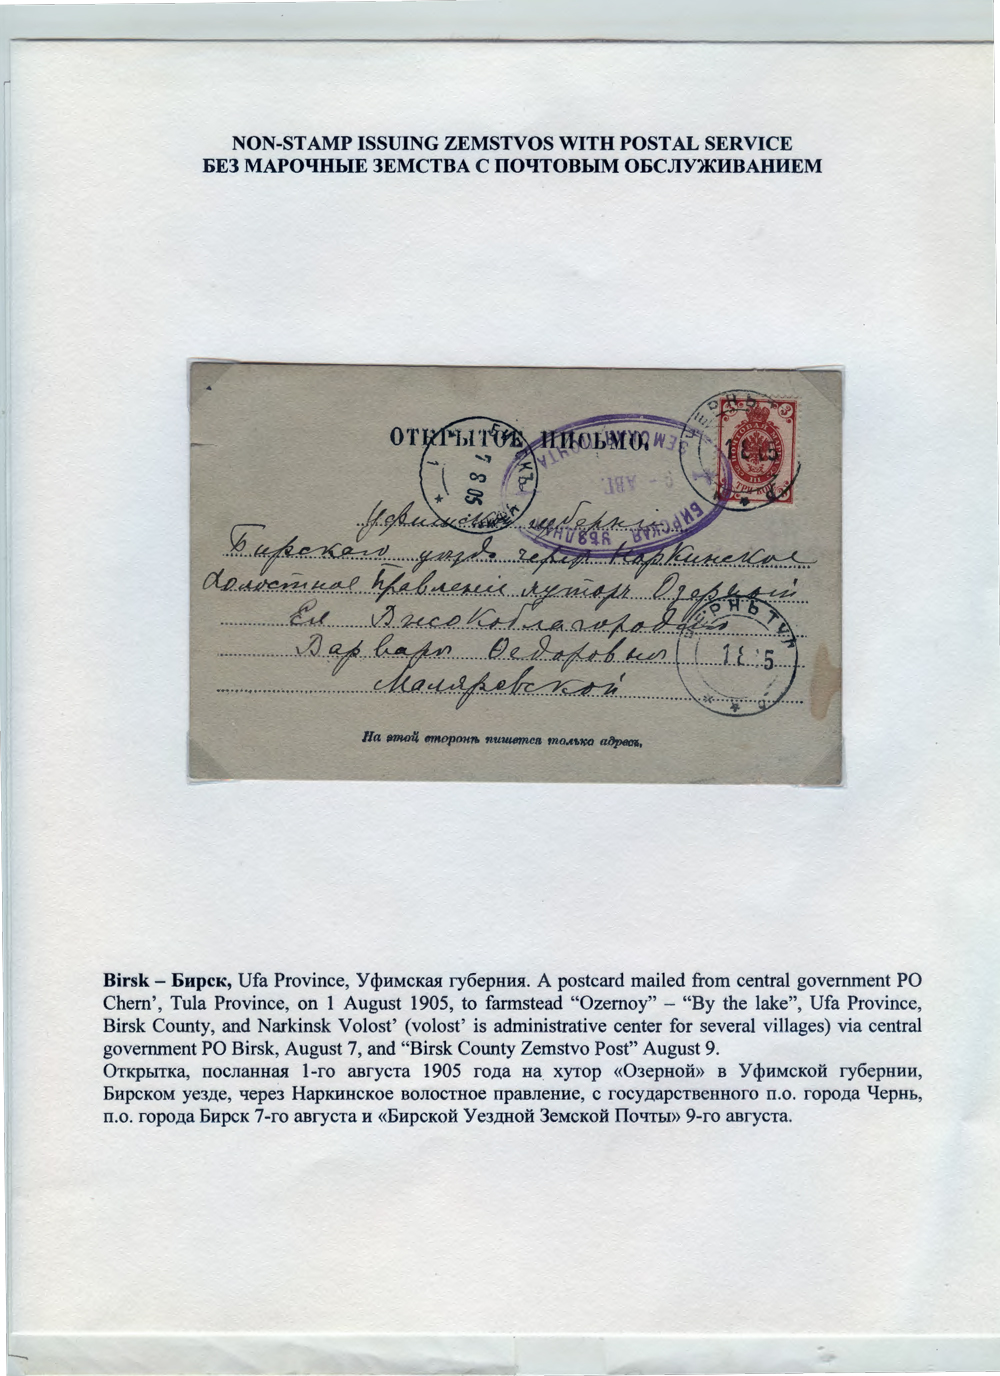 NON-STAMP ISSUING ZEMSTVOS WITH POSTAL SERVICE
БЕЗ МАРОЧНЫЕ ЗЕМСТВА С ПОЧТОВЫМ ОБСЛУЖИВАНИЕМ
ОТКРЫТОЕ ПИСЬМО.
БИРСКЪ
7 8 05
БИРСКАЯ УѢЗДНАЯ
ЗЕМСКАЯ ПОЧТА
9 - АВГ.
ЧЕРНЬ
3
ПОЧТОВАЯ
ТРИ КОП.
Уфимская губернія
Бирскаго уѣзда через Наркинское
Волостное Правленіе хуторъ Озерной
Ея Высокоблагородію
Варвары Федоровны
Маляревской
ЧЕРНЬ ТУЛ
1 8 5
На этой сторонѣ пишется только адресъ.
Birsk – Бирск, Ufa Province, Уфимская губерния. A postcard mailed from central government PO
Chern’, Tula Province, on 1 August 1905, to farmstead “Ozernoy” – “By the lake”, Ufa Province,
Birsk County, and Narkinsk Volost’ (volost’ is administrative center for several villages) via central
government PO Birsk, August 7, and “Birsk County Zemstvo Post” August 9.
Открытка, посланная 1-го августа 1905 года на хутор «Озерной» в Уфимской губернии,
Бирском уезде, через Наркинское волостное правление, с государственного п.о. города Чернь,
п.о. города Бирск 7-го августа и «Бирской Уездной Земской Почты» 9-го августа.